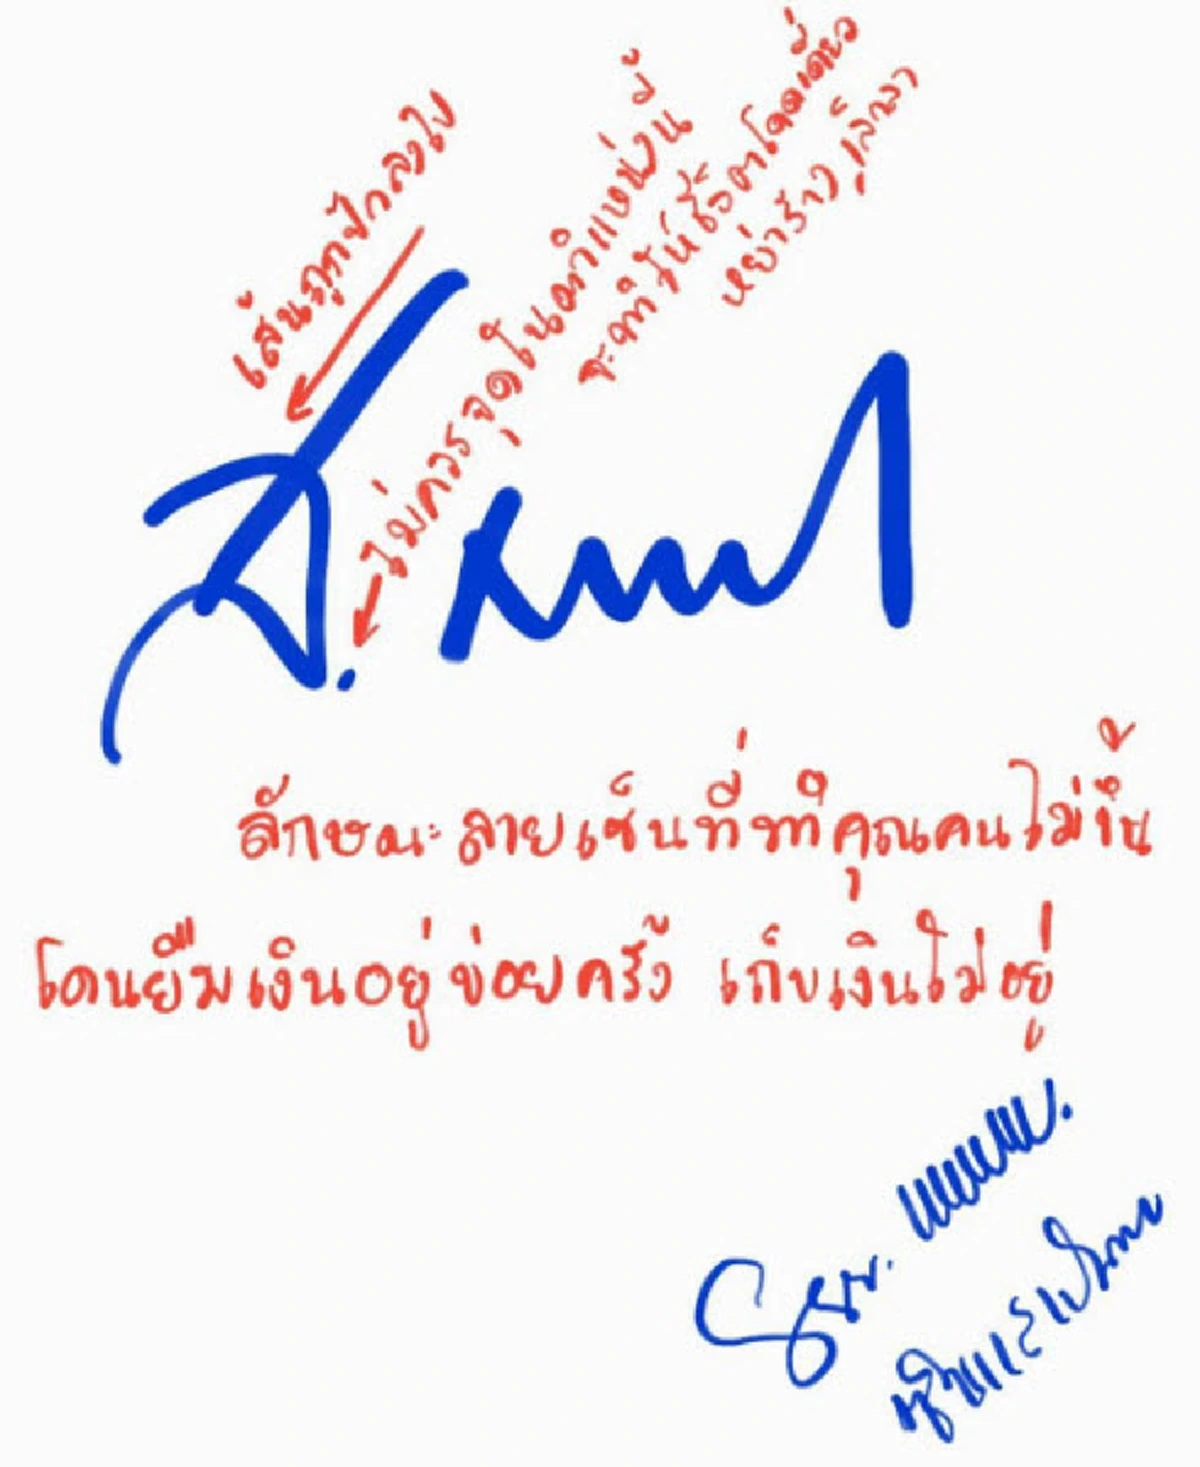 เส้นถูกปักลงไป
ไม่ควรจุดในตำแหน่งนี้
จะทำให้ชีวิตโดดเดี่ยว
หย่าร้าง เลิกลา
ส.
ลักษณะลายเซ็นที่ทำคุณคนไม่ขึ้น
โดนยืมเงินอยู่บ่อยครั้ง เก็บเงินไม่อยู่